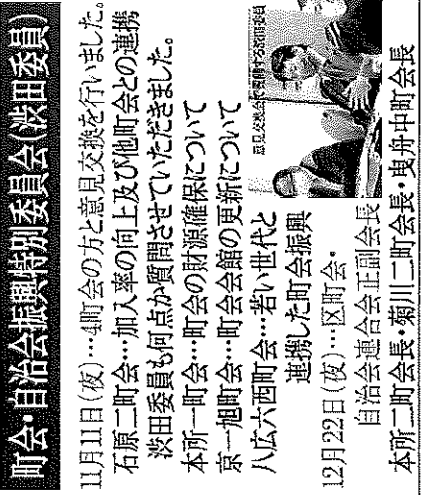 町会・自治会振興特別委員会(渋田委員)
11月11日(夜)…4町会の方と意見交換を行いました。
石原二町会…加入率の向上及び他町会との連携
渋田委員も何点か質問させていただきました。
本所一町会…町会の財源確保について
京一旭町会…町会会館の更新について
八広六西町会…若い世代と
連携した町会振興
12月22日(夜)…区町会・
自治会連合会正副会長
本所二町会長・菊川二町会長・曳舟中町会長
意見交換会で質問する渋田委員